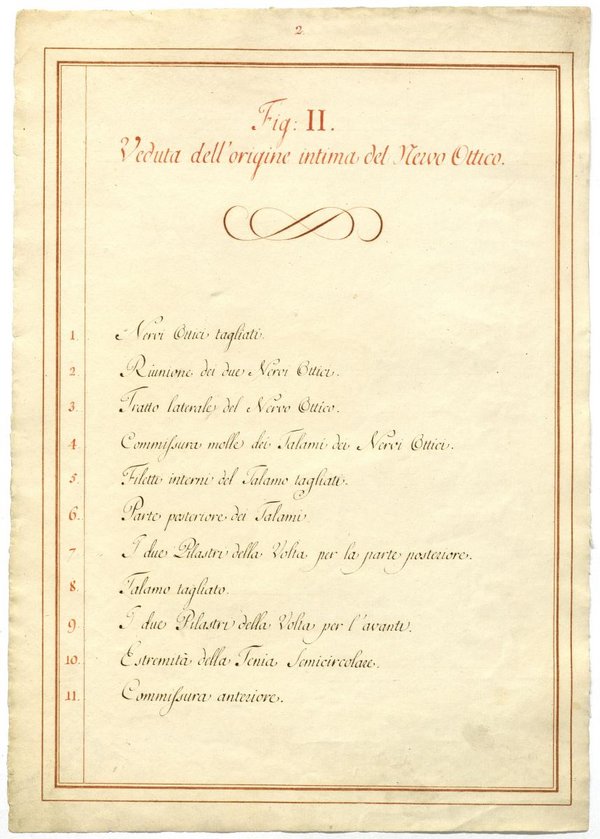 2.
Fig: II.
Veduta dell'origine intima del Nervo Ottico.
1. Nervi Ottici tagliati.
2. Riunione dei due Nervi Ottici.
3. Tratto laterale del Nervo Ottico.
4. Commiſsura molle dei Talami dei Nervi Ottici.
5. Filetti interni del Talamo tagliati.
6. Parte posteriore dei Talami.
7. I due Pilastri della Volta per la parte posteriore.
8. Talamo tagliato.
9. I due Pilastri della Volta per l'avanti.
10. Estremità della Tenia Semicircolare.
11. Commiſsura anteriore.